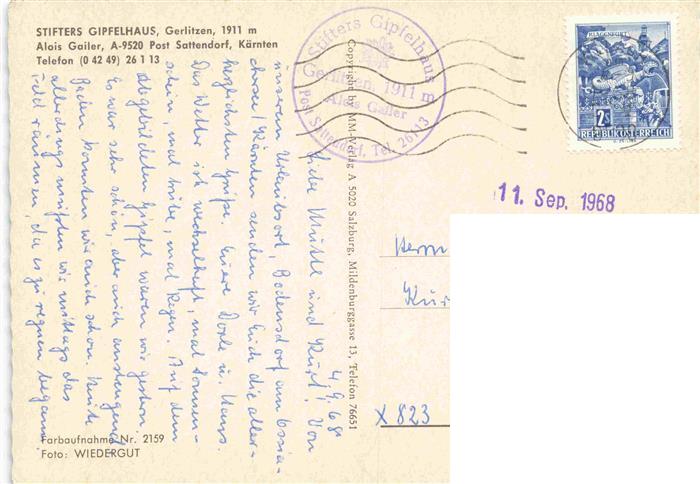 STIFTERS GIPFELHAUS, Gerlitzen, 1911 m
Alois Gailer, A-9520 Post Sattendorf, Kärnten
Telefon (0 42 49) 26 1 13
Stifters Gipfelhaus
Gerlitzen, 1911 m
Alois Gailer
Post Sattendorf, Tel. 26113
KLAGENFURT
2S
REPUBLIK ÖSTERREICH
11. Sep. 1968
4.9.68
Liebe Mutti und Kurt! Von
unserem Urlaubsort, Bodensdorf am Ossia-
chersee/Kärnten senden wir Euch die aller-
herzlichsten Grüße. Euere Dorle u. Hans.
Das Wetter ist wechselhaft, mal Sonnen-
schein, mal trübe, mal Regen. Auf dem
abgebildeten Gipfel waren wir gestern.
Es war sehr schön, aber auch anstrengend.
Baden konnten wir auch schon. Heute
allerdings mußten wir mittags das
Feld räumen, da es zu regnen begann.
Copyright by MM-Verlag A 5020 Salzburg, Mildenburggasse 13, Telefon 76651
Herrn
Kur
X 823
Farbaufnahme Nr. 2159
Foto: WIEDERGUT